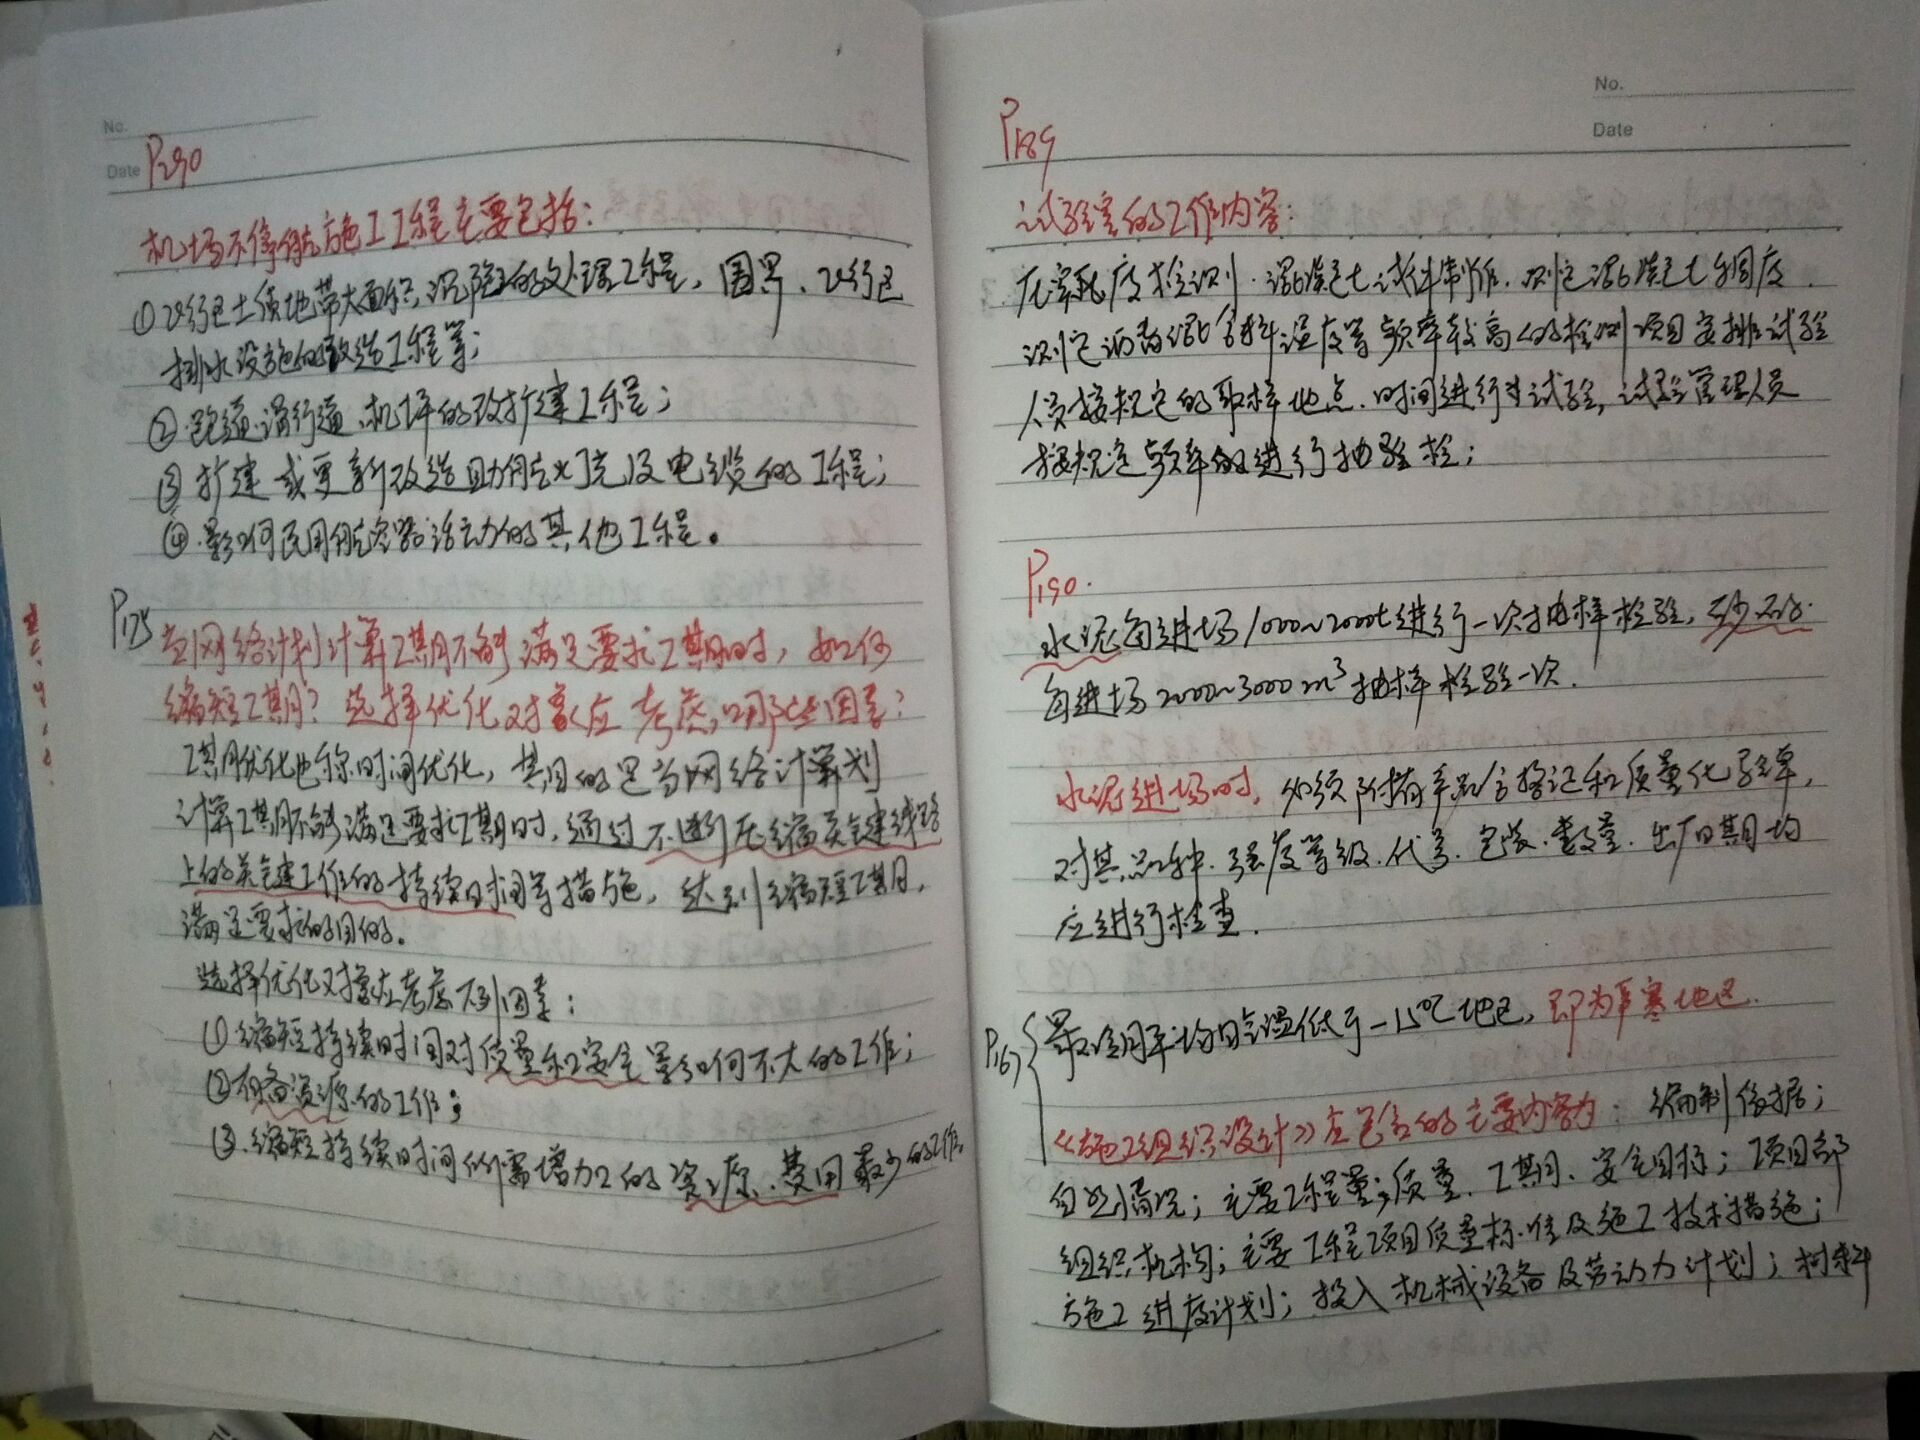 No.
Date P290
机场不停航施工工程主要包括：
①飞行区土质地带大面积沉陷的处理工程，围界、飞行区
排水设施的改造工程等；
②跑道、滑行道、机坪的改扩建工程；
③扩建或更新改造助航灯光及电缆的工程；
④影响民用航空器活动的其他工程。
P175
当网络计划计算工期不能满足要求工期时，如何
缩短工期？选择优化对象应考虑哪些因素？
工期优化也称时间优化，其目的是当网络计算划
计算工期不能满足要求工期时，通过不断压缩关键线路
上的关键工作的持续时间等措施，达到缩短工期，
满足要求的目的。
选择优化对象应考虑下列因素：
①缩短持续时间对质量和安全影响不大的工作；
②有备资源的工作；
③缩短持续时间所需增加的资源、费用最少的工作。
No.
Date
P189
试验室的工作内容：
压实度检测、混凝土试件制作、测定混凝土稠度、
测定沥青混合料温度等频率较高的检测项目安排试验
人员按规定的取样地点、时间进行试验，试验管理人员
按规定频率的进行抽检；
P190.
水泥每进场1000~2000t进行一次抽样检验，砂石
每进场2000~3000m³抽样检验一次.
水泥进场时，必须附有产品合格证和质量化验单，
对其品种、强度等级、代号、包装、数量、出厂日期均
应进行检查.
P167 最冷月平均气温低于-15℃地区，即为严寒地区.
《施工组织设计》应包含的主要内容为：编制依据；
自然情况；主要工程量；质量、工期、安全目标；项目部
组织机构；主要工程项目质量标准及施工技术措施；
施工进度计划；投入机械设备及劳动力计划；材料